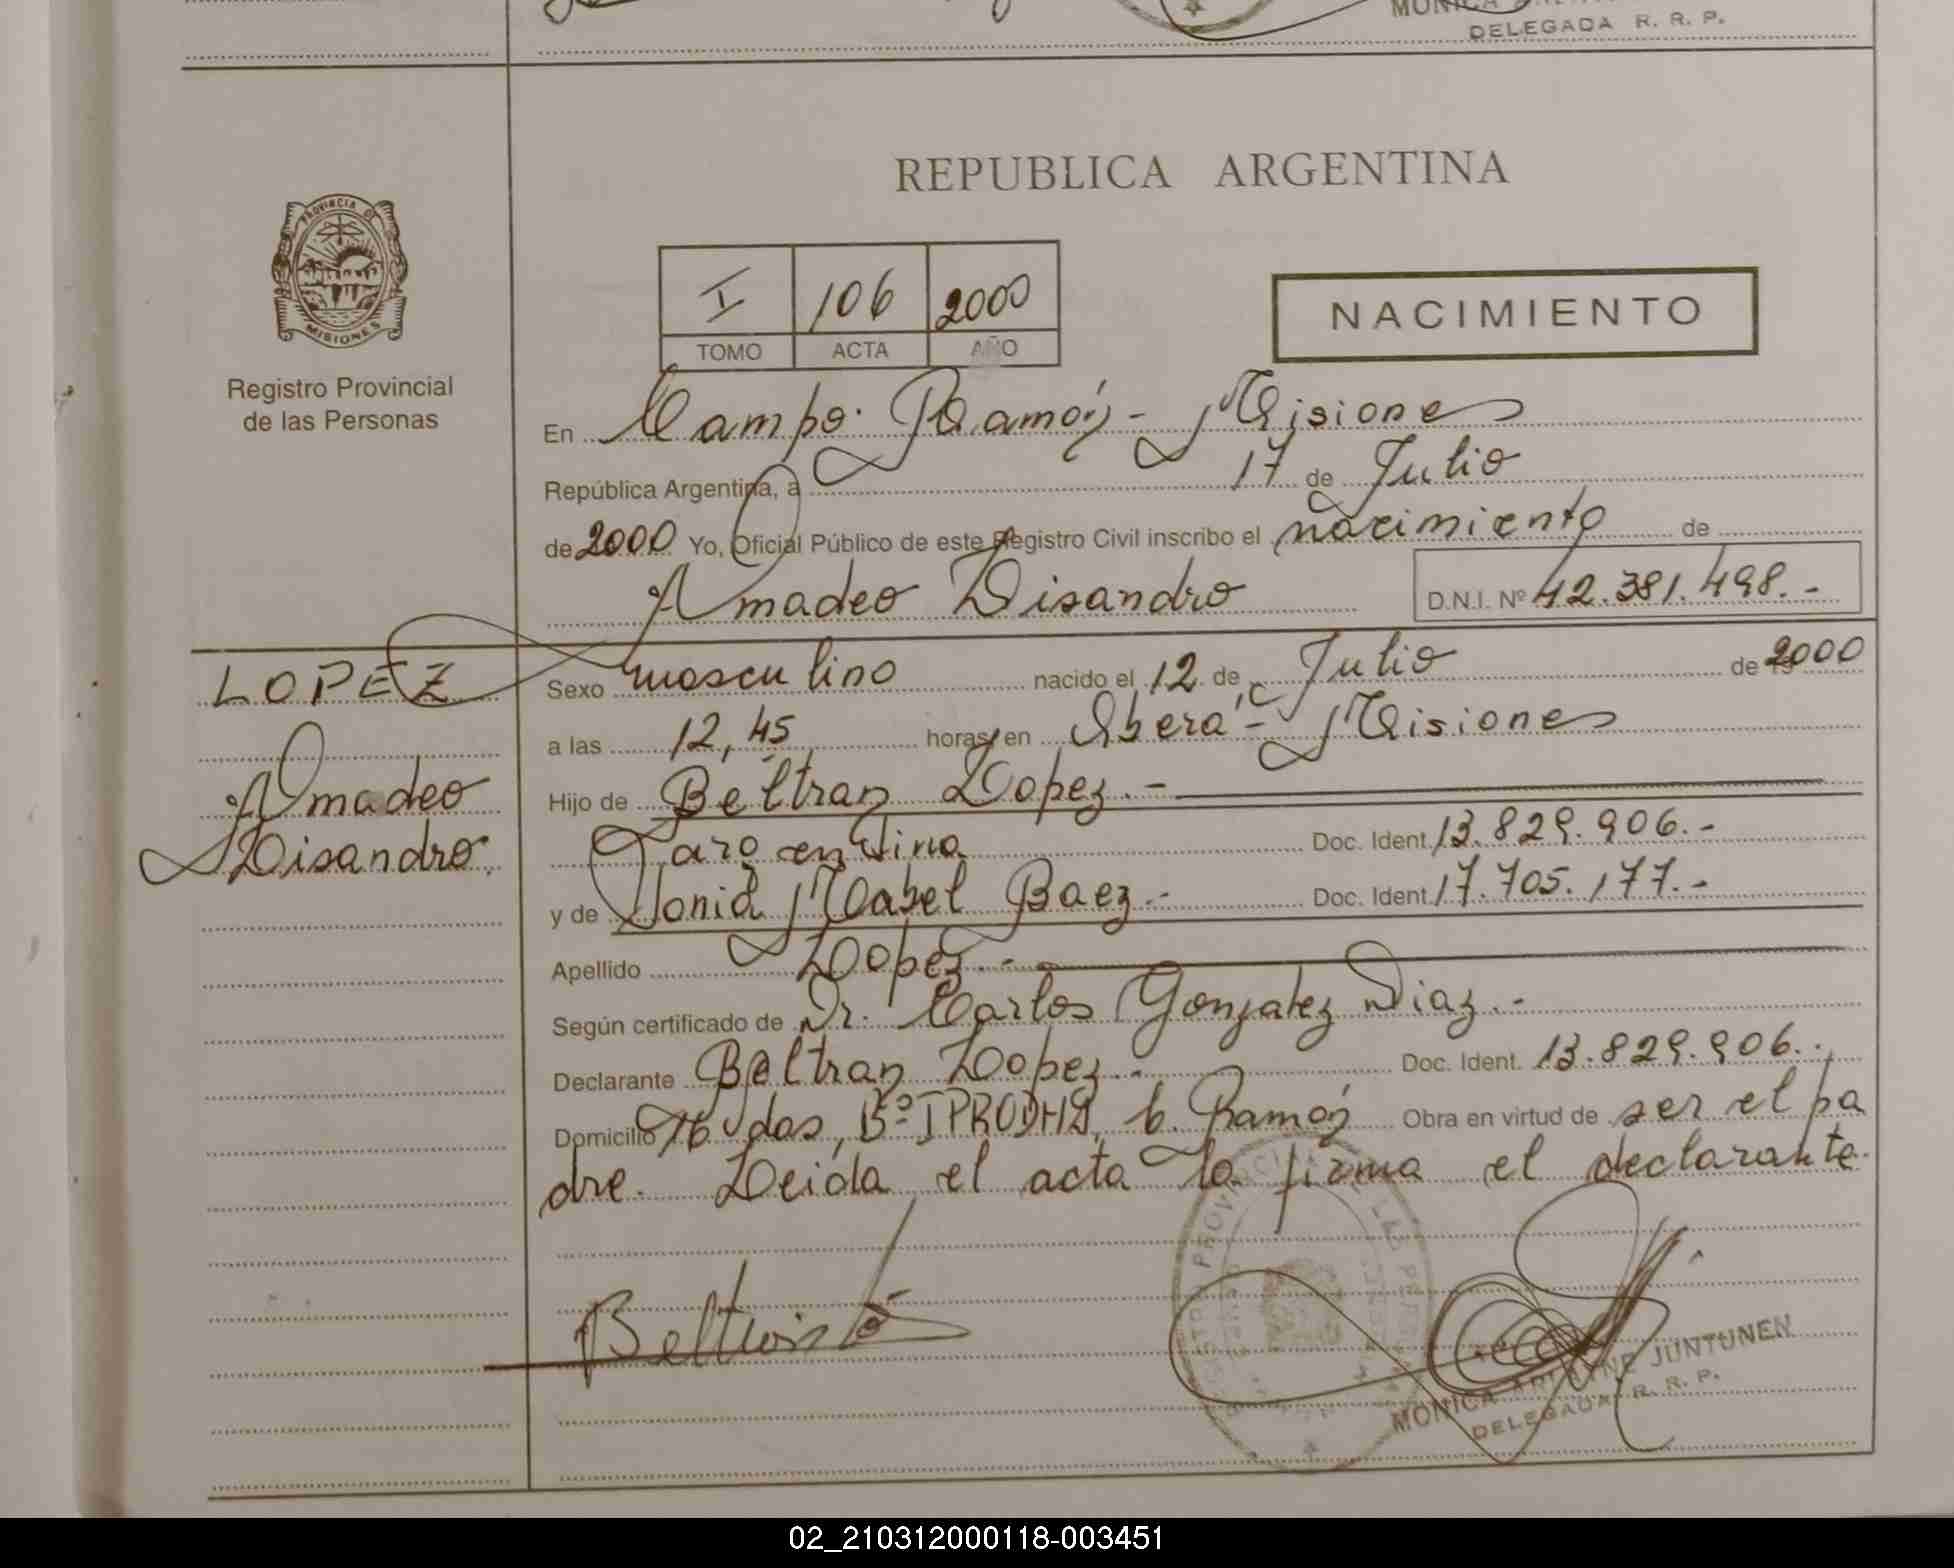 DELEGADA R. R. P.
REPUBLICA ARGENTINA
PROVINCIA DE
MISIONES
Registro Provincial
de las Personas
I 106 2000
TOMO ACTA AÑO
NACIMIENTO
En Campo Ramón - Misiones
República Argentina, a 17 de Julio
de 2000 Yo, Oficial Público de este Registro Civil inscribo el nacimiento de
Amadeo Lisandro D.N.I. Nº 42.381.498.-
LOPEZ
Amadeo
Lisandro
Sexo masculino nacido el 12 de Julio de 2000
a las 12,45 horas en Oberá - Misiones
Hijo de Beltran Lopez.-
Doc. Ident. 13.829.906.-
y de Sonia Mabel Baez.- Doc. Ident. 17.705.177.-
Apellido Lopez.-
Según certificado de Dr. Carlos Gonzalez Diaz.-
Declarante Beltran Lopez.- Doc. Ident. 13.829.906.-
Domicilio 76 vdas, Bº IPRODHA, C. Ramón Obra en virtud de ser el pa
dre. Leida el acta la firma el declarante.
MONICA JUNTUNEN
DELEGADA R. R. P.
02_210312000118-003451